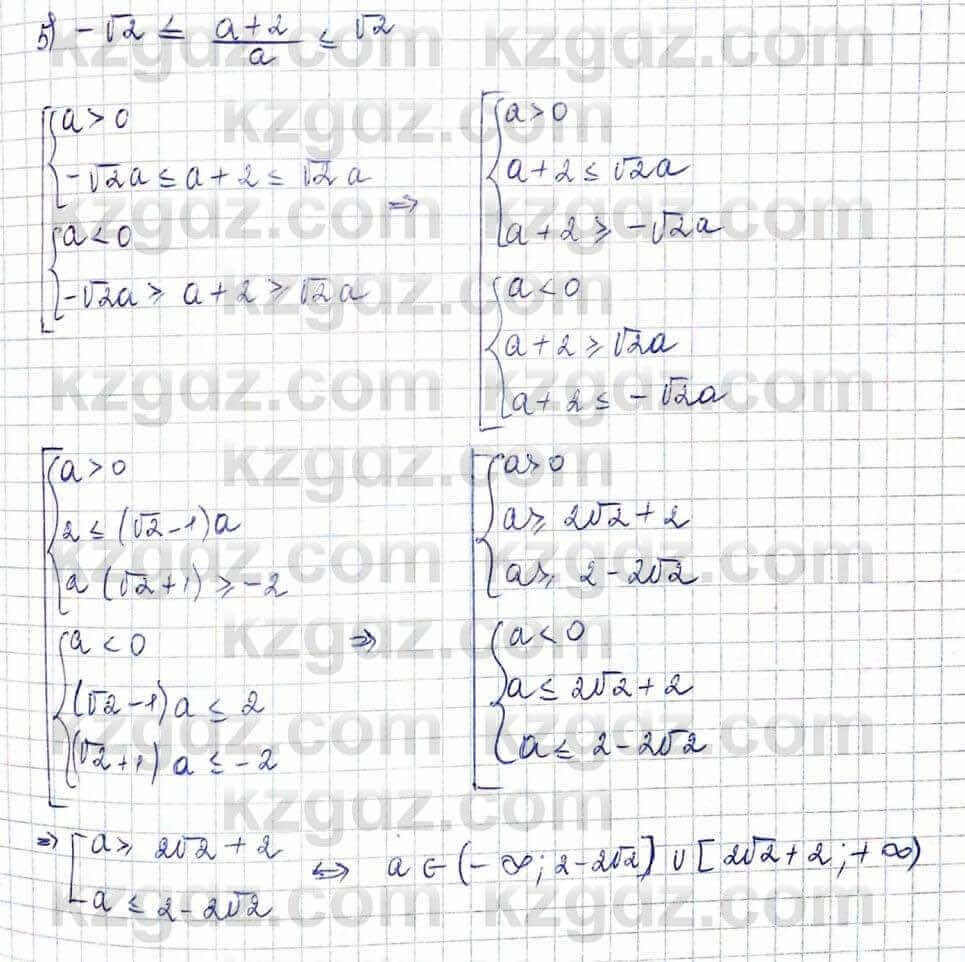 5) -√2 ≤ (a+2)/a ≤ √2
[ { a > 0
-√2a ≤ a + 2 ≤ √2a
{ a < 0
-√2a ≥ a + 2 ≥ √2a
⇒
[ { a > 0
a + 2 ≤ √2a
a + 2 ≥ -√2a
{ a < 0
a + 2 ≥ √2a
a + 2 ≤ -√2a
[ { a > 0
2 ≤ (√2-1)a
a (√2+1) ≥ -2
{ a < 0
(√2-1)a ≤ 2
(√2+1)a ≤ -2
⇒
[ { a > 0
a ≥ 2√2 + 2
a ≥ 2 - 2√2
{ a < 0
a ≤ 2√2 + 2
a ≤ 2 - 2√2
⇒ [ a ≥ 2√2 + 2
a ≤ 2 - 2√2
⇔ a ∈ (-∞; 2-2√2] ∪ [2√2+2; +∞)
kzgdz.com